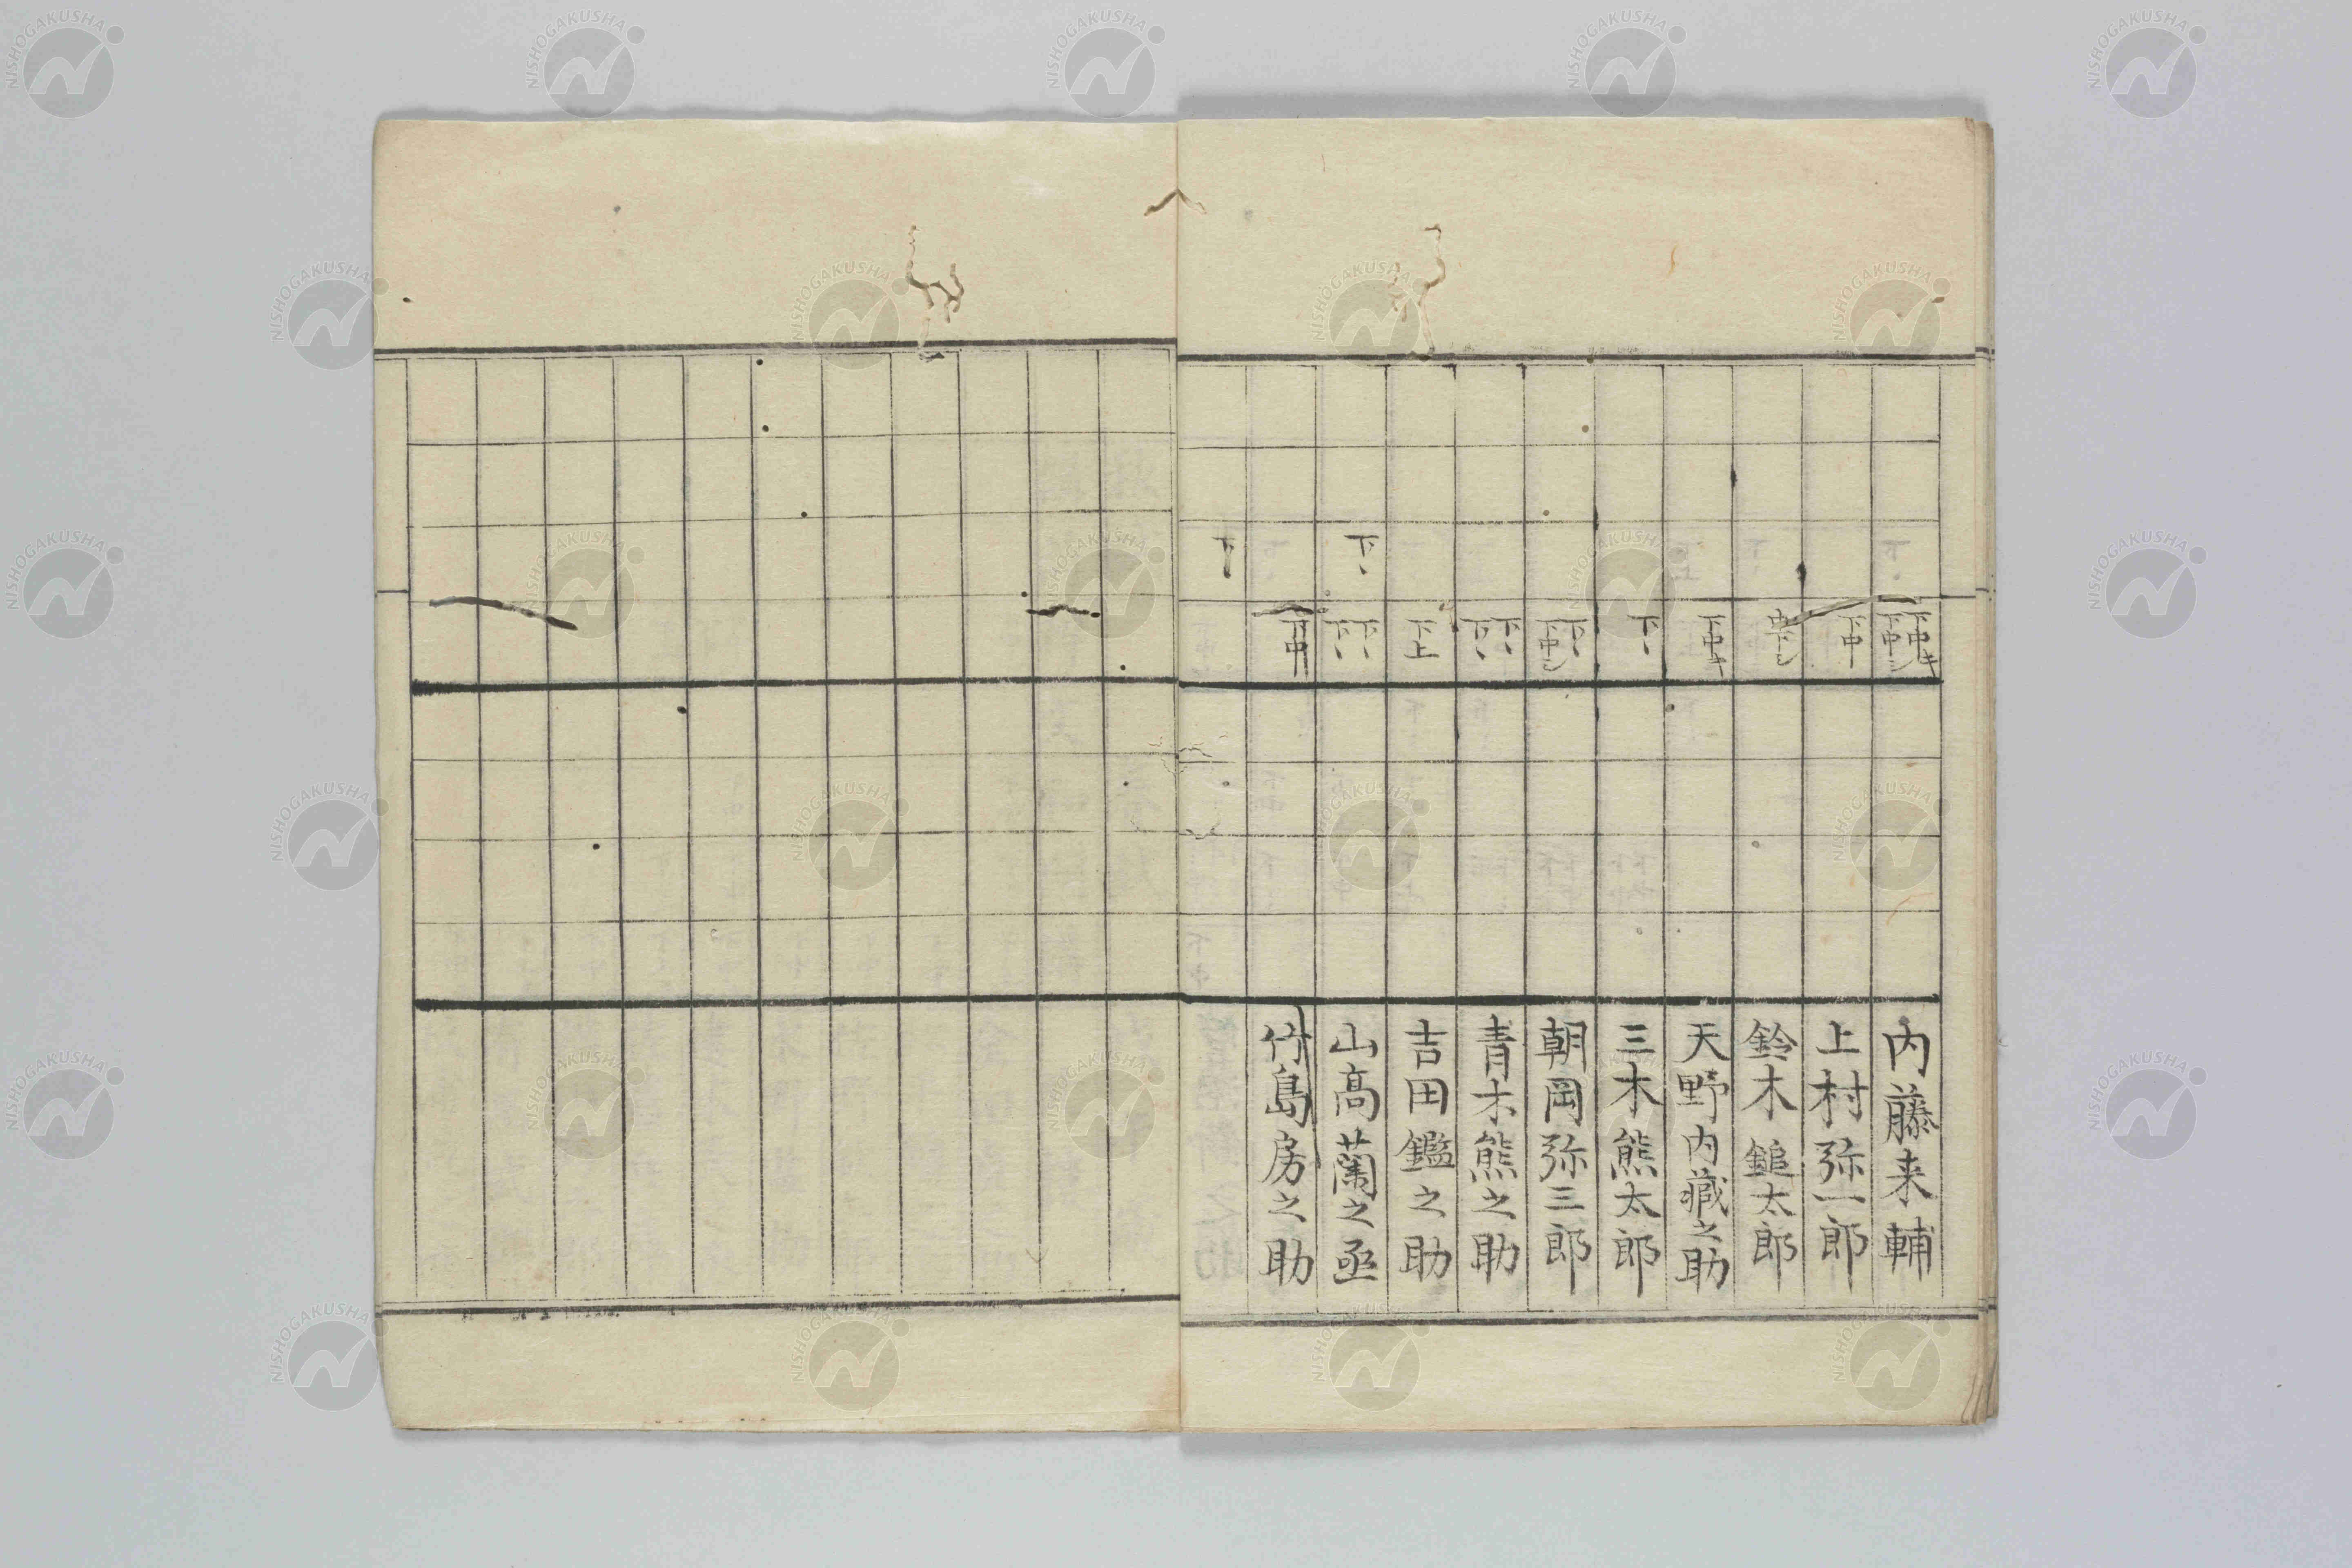 下中キ
下中シ
内藤来輔
下中
上村弥一郎
中下シ
鈴木鎚太郎
下中キ
天野内蔵之助
下、
三木熊太郎
下、
下中シ
朝岡弥三郎
下、
下、
青木熊之助
下上
吉田鑑之助
下、
下、
下、
山高蘭之丞
下中
竹島房之助
下、
NISHOGAKUSHA